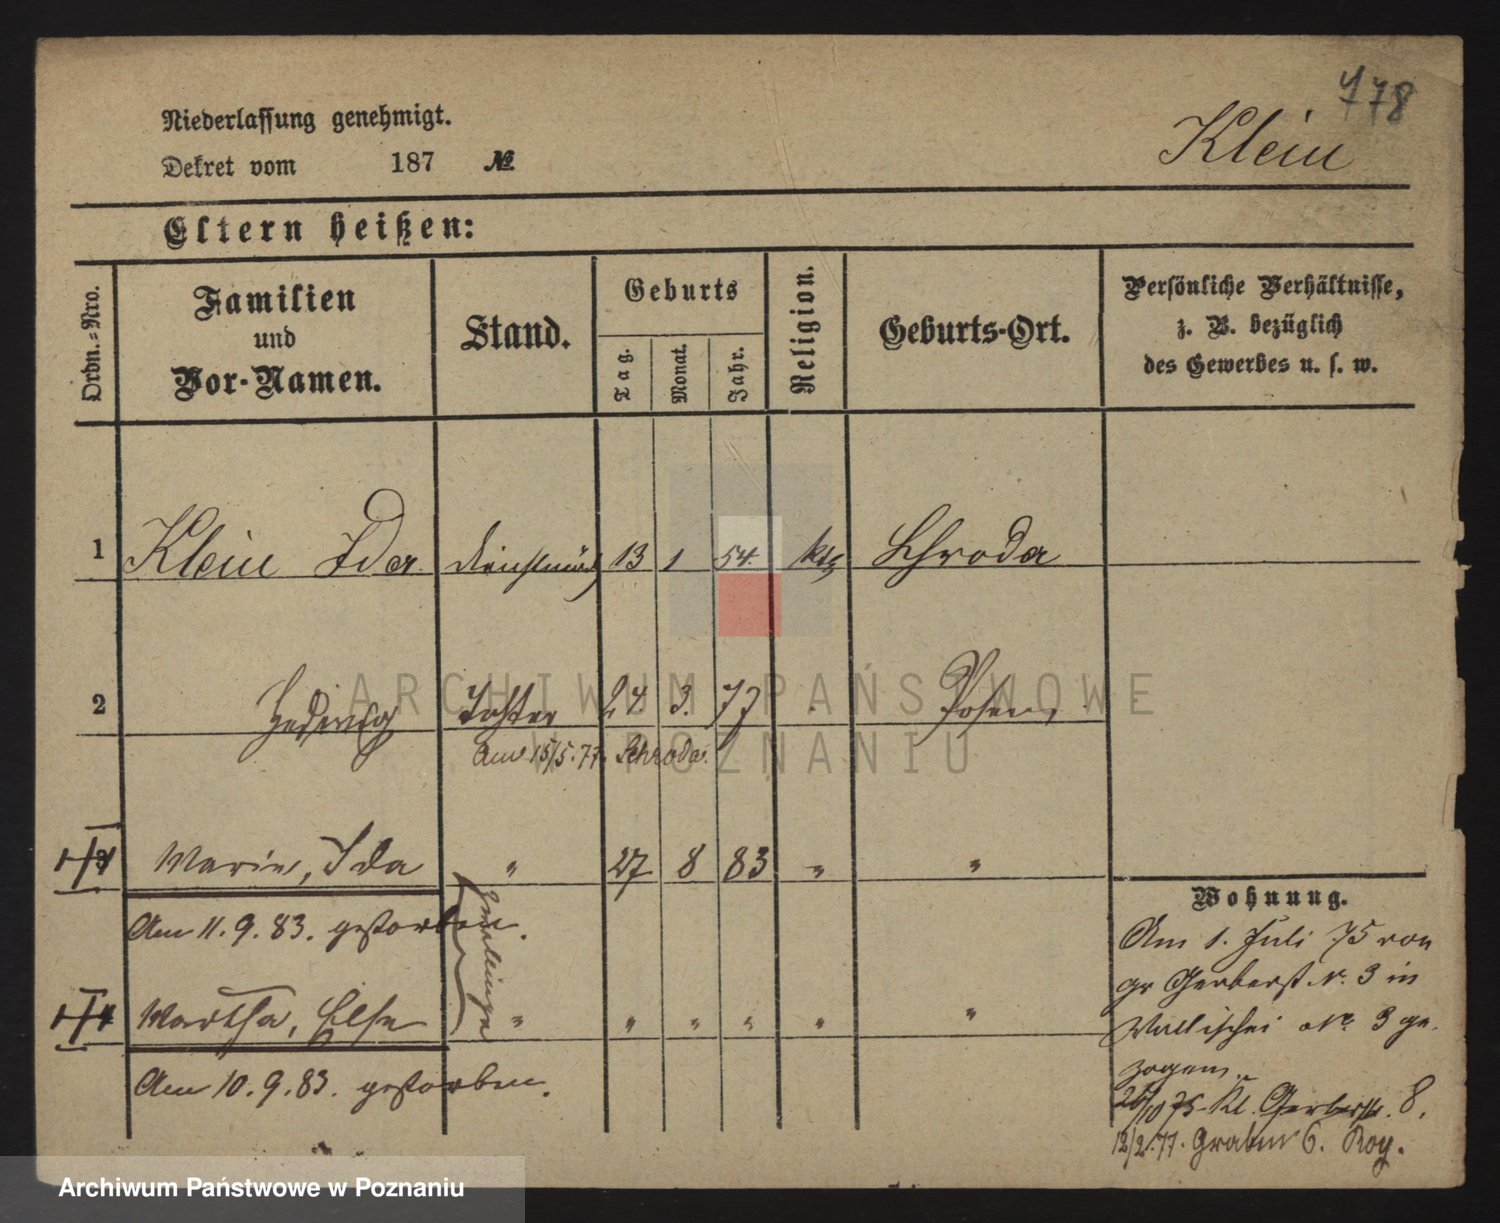 778
Niederlassung genehmigt.
Klein
Dekret vom 187 №
Eltern heißen:
Ordn.-Nro.
Familien
und
Vor-Namen.
Stand.
Geburts
Tag.
Monat.
Jahr.
Religion.
Geburts-Ort.
Persönliche Verhältnisse,
z. B. bezüglich
des Gewerbes u. s. w.
1 Klein Ida Dienstmäd 13 1 54. kth Schroda
2 Hedwig Tochter 24 3. 77 Posen
Am 15/5.77. Schroda.
3 Marie, Ida " 27 8 83 " "
Am 11.9.83. gestorben.
Zwillinge
4 Martha, Else " " " " " "
Am 10.9.83. gestorben.
Wohnung.
Am 1. Juli 75 von
gr Gerberst Nr. 3 in
Wallischei No. 3 ge-
zogen.
26/10 75 Kl. Gerberstr. 8.
12/2.77. Graben 6.
ARCHIWUM PAŃSTWOWE
W POZNANIU
Archiwum Państwowe w Poznaniu